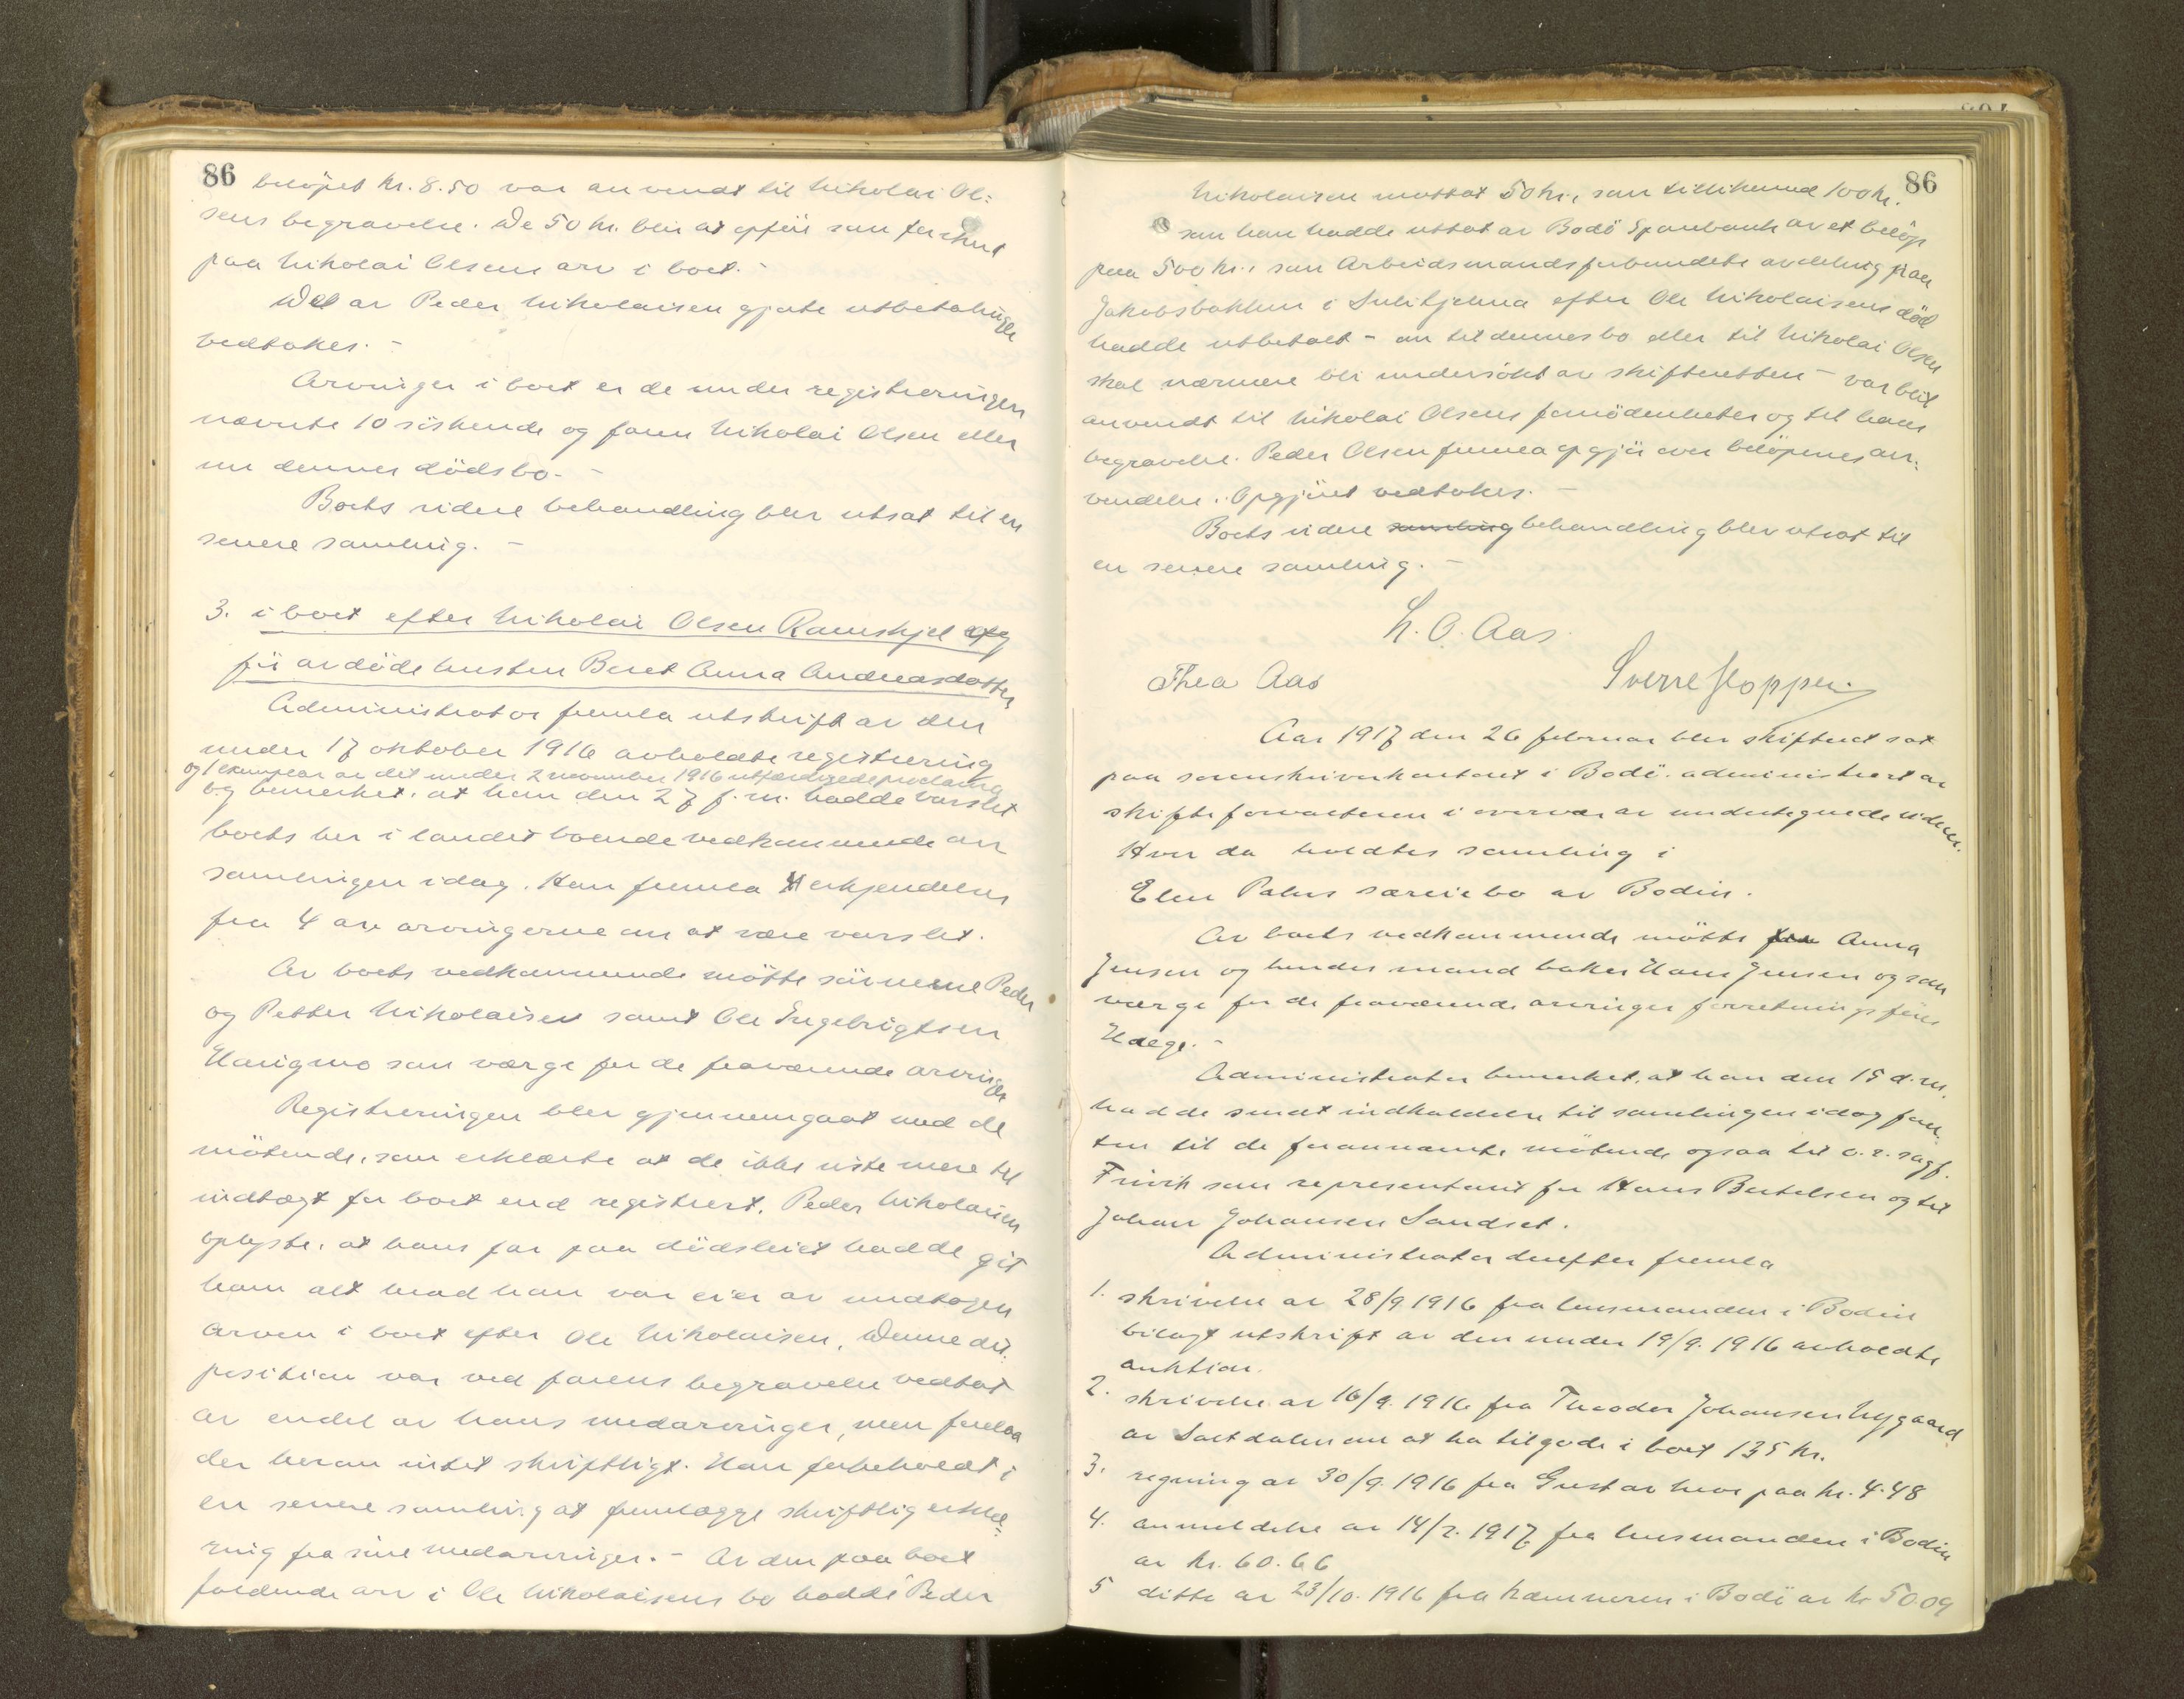 86
beløpet kr. 8.50 var anvendt til Nikolai Ol:
sens begravelse. De 50 kr. blir at opføre som forskud
paa Nikolai Olsens arv i boet. -
Det av Peder Nikolaisen gjorte utbetalinger
vedtokes. -
Arvinger i boet er de under registreringen
nævnte 10 søskende og faren Nikolai Olsen eller
nu dennes dødsbo. -
Boets videre behandling blev utsat til en
senere samling. -
3. i boet efter Nikolai Olsen Ramskjel og
før avdøde hustru Beret Anna Andreasdatter
Administrator fremla utskrift av den
under 17 oktober 1916 avholdte registrering
og 1 exemplar av det under 2 november 1916 utfærdigede proclama
og bemerket, at han den 27 f.m. hadde varslet
boets her i landet boende vedkommende om
samlingen idag. Han fremla erkjendelse
fra 4 av arvingerne om at være varslet.
Av boets vedkommende møtte sønnerne Peder
og Petter Nikolaisen samt Ole Engebrigtsen
Haugmo som værge for de fraværende arvinger
Registreringen blev gjennemgaat med de
møtende, som erklærte at de ikke viste mere til
indtægt for boet end registrert. Peder Nikolaisen
oplyste, at hans far paa dødsleiet hadde git
ham alt hvad han var eier av undtagen
arven i boet efter Ole Nikolaisen. Denne dis:
position var ved farens begravelse vedtat
av endel av hans medarvinger, men forelaa
der herom intet skriftligt. Han forbeholdt i
en senere samling at fremlægge skriftlig erklæ:
ring fra sine medarvinger. - Av den paa boet
faldende arv i Ole Nikolaisens bo hadde Peder
86
Nikolaisen mottat 50 kr., som tillikemed 100 kr.
som han hadde uttat av Bodø Sparebank av et beløp
paa 500 kr., som Arbeidsmandsforbundets avdeling paa
Jakobsbakken i Sulitjelma efter Ole Nikolaisens død
hadde utbetalt - om til dennes bo eller til Nikolai Olsen
skal nærmere bli undersøkt av skifteretten - var blit
anvendt til Nikolai Olsens fornødenheter og til hans
begravelse. Peder Olsen fremla opgjør over beløpenes an:
vendelse. Opgjøret vedtokes. -
Boets videre samling behandling blev utsat til
en senere samling. -
L. O. Aas.
Thea Aas Sverre Hoppen
Aar 1917 den 26 februar blev skifteret sat
paa sorenskriverkontoret i Bodø. administrert av
skifteforvalteren i overvær av undertegnede vidner.
Hvor da holdtes samling i
Elen Palms særeiebo av Bodin.
Av boets vedkommende møtte fra Anna
Jensen og hendes mand baker Hans Jensen og som
værge for de fraværende arvinger forretningsfører
Hæge. -
Administrator bemerket, at han den 15 d.m.
hadde sendt indkaldelse til samlingen idag for:
uten til de forannævnte møtende ogsaa til o.r.sagf.
Frivik som representant for Hans Bertelsen og til
Johan Johansen Sandset.
Administrator derefter fremla
1. skrivelse av 28/9 1916 fra lensmanden i Bodin
bilagt utskrift av den under 19/9. 1916 avholdte
auktion.
2. skrivelse av 16/9. 1916 fra Theodor Johansen Nygaard
av Saltdalen om at ha tilgode i boet 135 kr.
3. regning av 30/9. 1916 fra Gustav paa kr. 4.48
4. anmeldelse av 14/2. 1917 fra lensmanden i Bodin
av kr. 60.66
5 ditto av 23/10. 1916 fra kæmneren i Bodø av kr 50.09